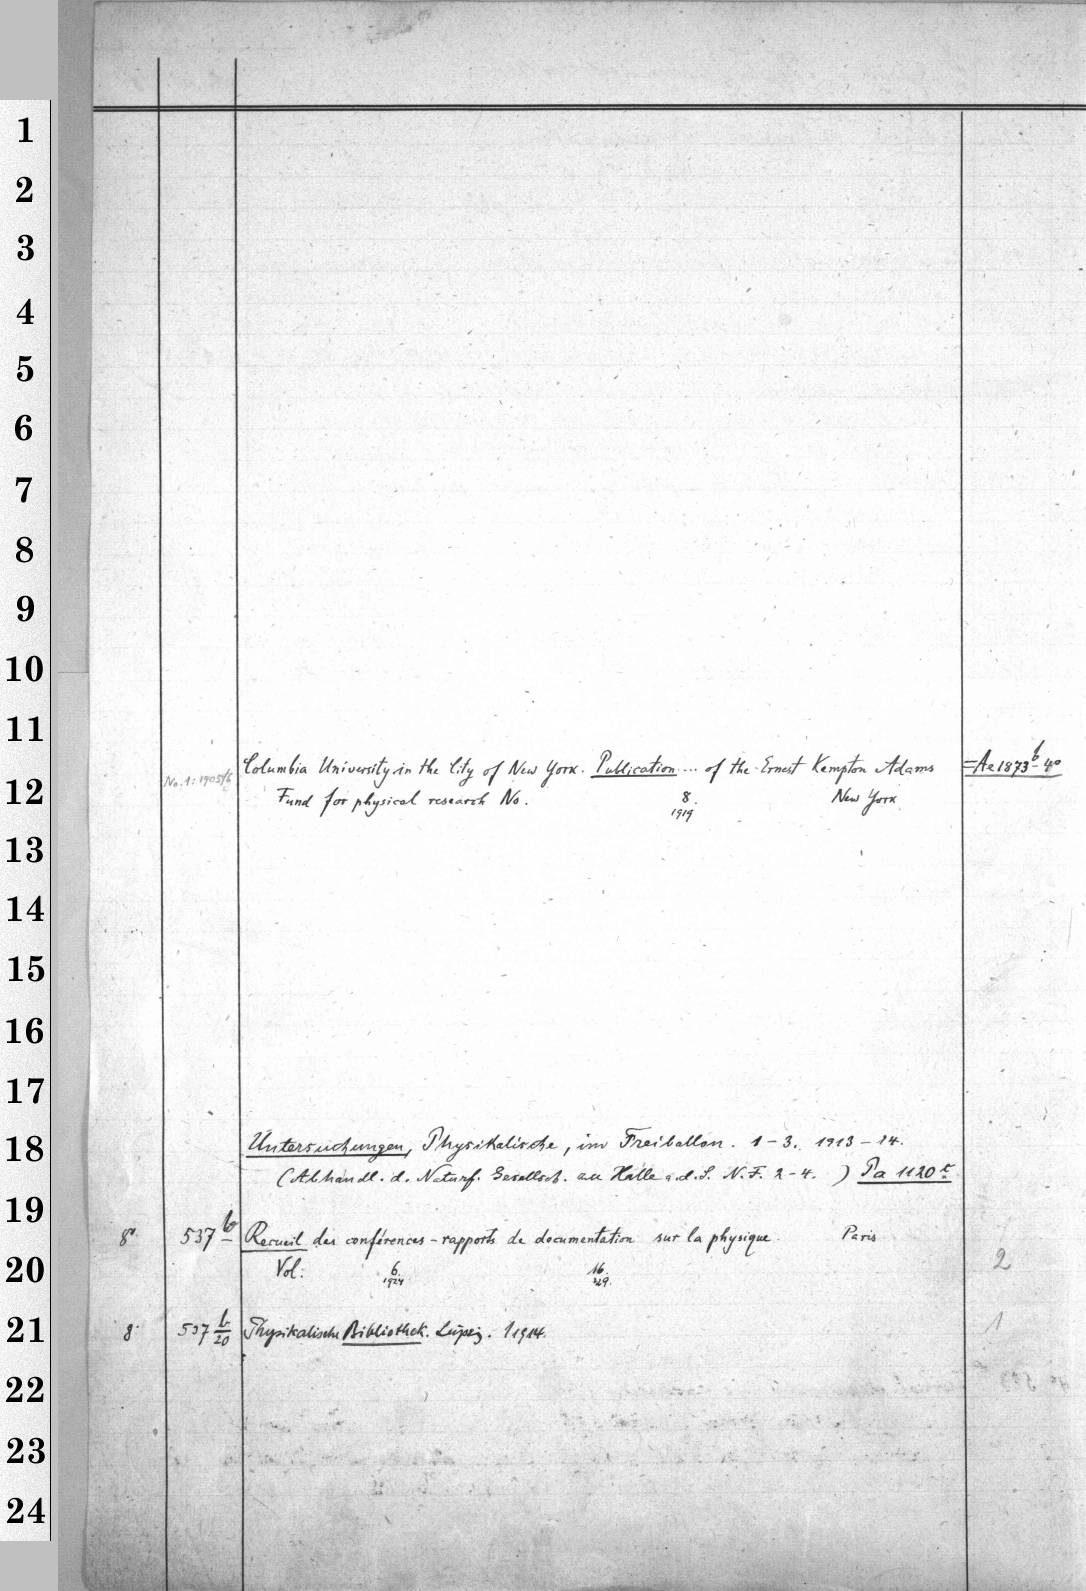 1
2
3
4
5
6
7
8
9
10
11
Columbia University in the City of New York. Publication ... of the Ernest Kempton Adams =Ae 1873 b 4°
12 No. 1: 1905/6
Fund for physical research No. 8. New York
1919
13
14
15
16
17
18 Untersuchungen, Physikalische, im Freiballon. 1-3. 1913-14.
(Abhandl. d. Naturf. Gesellsch. zu Halle a.d.S. N.F. 2-4.) Pa 1120
19
8° 537 b Recueil des conférences-rapports de documentation sur la physique. Paris
20 Vol: 6. 16. 2
1924 29.
21 8° 537 b/20 Physikalische Bibliothek. Leipzig. 1 1914. 1
22
23
24